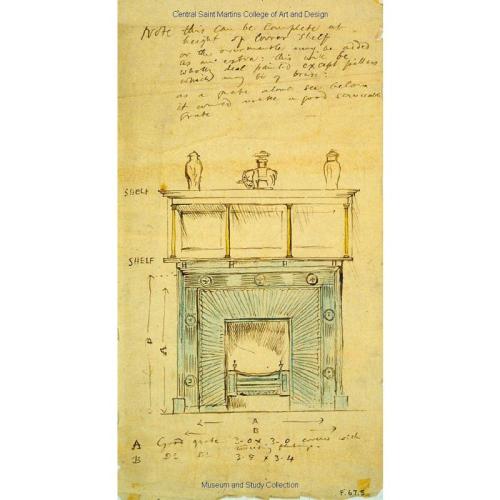 Central Saint Martins College of Art and Design
Note this can be complete at
height of lower shelf
or the overmantle may be added
as an extra: this will be
wholly deal painted except pillars
which may be of brass:
as a grate alone see below
it would make a good serviceable
grate
SHELF
SHELF
B
A
A
B
A Good grate 3-0 x 3-0 with
B Do Do 3-8 x 3-4
Museum and Study Collection